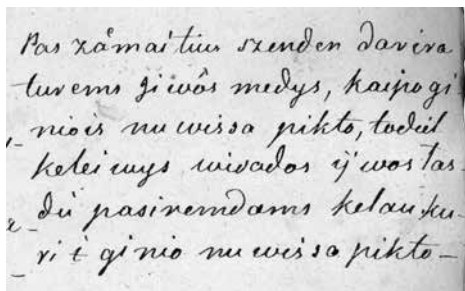 Pas zåmaitius szenden davira
turems jiwôs medys, kaipo gi
niois nu wissa pikto, todiel
keleiwys wivados ijwos las-
dů pasiremdams kelau, ku-
ri i ginio nu wissa pikto-